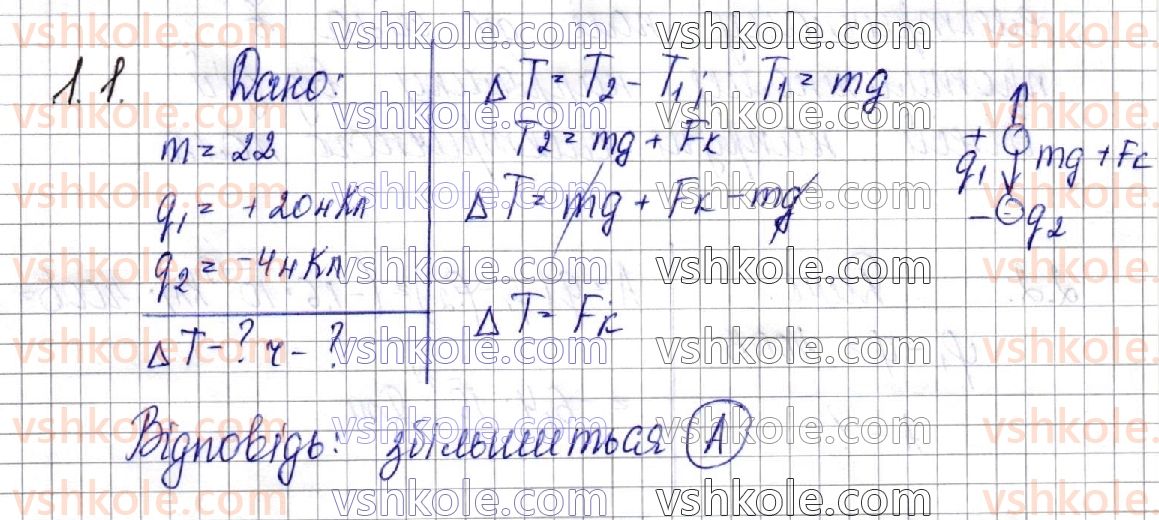 1.1. Дано:
m = 2г
q₁ = +20нКл
q₂ = -4нКл
ΔT - ? r - ?
ΔT = T₂ - T₁; T₁ = mg
T₂ = mg + Fк
ΔT = mg + Fк - mg
ΔT = Fк
+
q₁ mg + Fк
- q₂
Відповідь: збільшиться А
vshkole.com